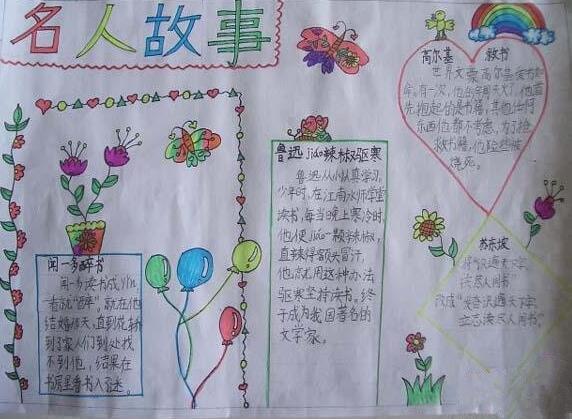 名人故事
高尔基 救书
世界文豪高尔基爱书如
命。有一次,他的房间失火了,他首
先抱起的是书籍,其他的任何
东西他都不考虑,为了抢
救书籍,他险些被
烧死。
鲁迅jiáo辣椒驱寒
鲁迅从小认真学习。
少年时,在江南水师学堂
读书,每当晚上寒冷时,
他便jiáo一颗辣椒,
直辣得额头冒汗。
他就用这种办法
驱寒坚持读书。终
于成为我国著名的
文学家。
闻一多醉书
闻一多读书成yǐn,
一看就“醉”,就在他
结婚那天,直到花轿
到了家,人们到处找
不到他,结果在
书房里看书入了迷。
苏东坡
将“识遍天下字,
读尽人间书”
改成“发奋识遍天下字,
立志读尽人间书”。